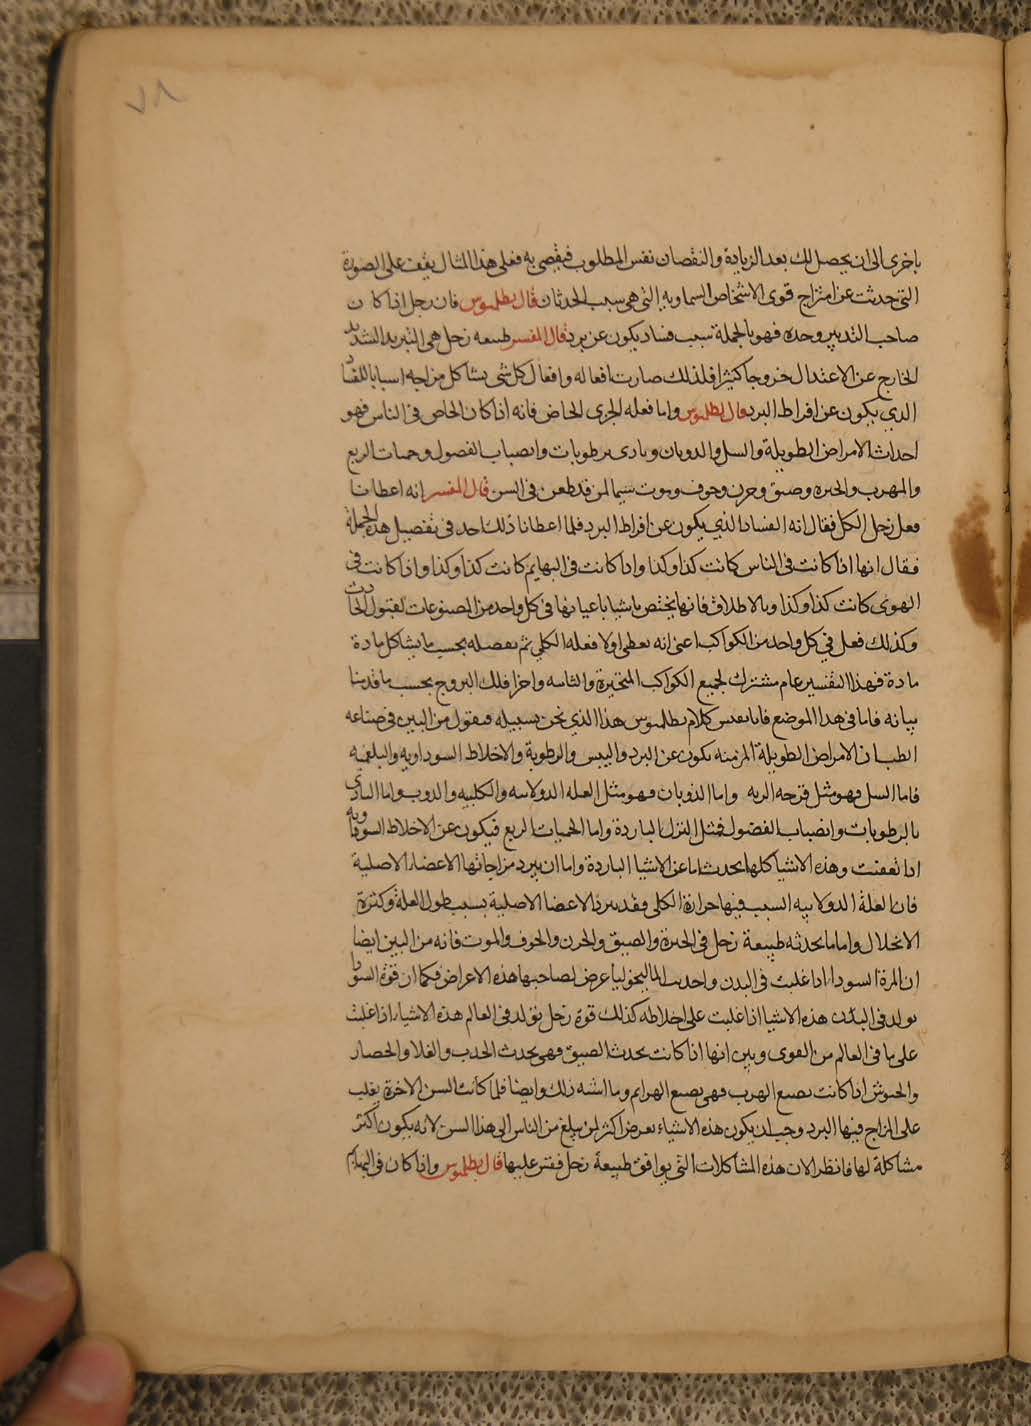 ٧٨
باخرى الى ان يحصل لك بعد الزيادة والنقصان نفس المطلوب فيقضى به فعلى هذا المثال يقف على الصورة
التى حدثت عن امتزاج قوى الاشخاص السماويه التى هى سبب الحدثان قال بطلميوس فان زحل اذا كان
صاحب التدبير وحده فهو بالجملة سبب فساد يكون عن برد قال المفسر طبيعه زحل هى التبريد الشديد
الخارج عن الاعتدال خروجا كثيرا فلذلك صارت افعاله وافعال كل شى يشاكل مزاجه اسبابا للفساد
الذي يكون عن افراط البرد قال بطلميوس واما فعله الجزى الخاص فانه اذا كان الخاص فى الناس فهو
احداث الامراض الطويلة والسل والذوبان وتادى برطوبات وانصباب الفصول وحميات الربع
والهرب والحيره وضيق وحزن وخوف وموت سيما لمن قد طعن فى السن قال المفسر انه اعطانا
فعل زحل الكل فقال انه الفساد الذي يكون عن افراط البرد فلما اعطانا ذلك اخذ فى تفصيل هذه الجملة
فقال انها اذا كانت فى الناس كانت كذا وكذا واذا كانت فى البهايم كانت كذا وكذا واذا كانت فى
الهوى كانت كذا وكذا وبالاطلاق فانها يختص باشيا باعيانها فى كل واحد من المصنوعات لقبول الحادث
وكذلك فعل في كل واحد من الكواكب اعنى انه يعطى اولا فعله الكلي ثم يفصله بحسب ما يشاكل مادة
مادة فهذا التفسير عام مشترك لجميع الكواكب المتحيرة والثابته واجزا فلك البروج بحسب ما قدمنا
بيانه فاما فى هذا الموضع فانا نفسر كلام بطلميوس هذا الذي نحن بسبيله فنقول من البين فى صناعه
الطب ان الامراض الطويلة المزمنه تكون عن البرد واليبس والرطوبة والاخلاط السوداويه والبلغميه
فاما السل فهو مثل قرحه الريه واما الذوبان فهو مثل العله الدولابيه والكليه والذوب واما التادى
بالرطوبات وانصباب الفضول فمثل النزل الباردة واما الحميات الربع فيكون عن الاخلاط السوداويه
اذا تعفنت وهذه الاشيا كلها يحدث اما عن الاشيا الباردة واما ان يبرد مزاجاتها الاعضا الاصلية
فان العلة الدولابيه السبب فيها حرارة الكلى وقد يبرد الاعضا الاصلية بسبب طول العلة وكثرة
الانحلال واما ما يحدثه طبيعة زحل فى الحيرة والضيق والحزن والخوف والموت فانه من البين ايضا
ان المرة السودا اذا غلبت فى البدن واحدث الماليخوليا عرض لصاحبها هذه الاعراض فكما ان قوة السودا
تولد فى البدن هذه الاشيا اذا غلبت على اخلاطه كذلك قوة زحل تولد فى العالم هذة الاشيا اذا غلبت
على ما فى العالم من القوى وبين انها اذا كانت يحدث الضيق فهى يحدث الجدب والغلا والحصار
والحبوش اذا كانت تصنع الهرب فهى تصنع الهزايم وما اشبه ذلك وايضا فلما كانت السن الاخرة يغلب
على المزاج فيها البرد وجب ان يكون هذه الاشياء تعرض اكثر لمن يبلغ من الناس الى هذا السن لانه يكون اكثر
مشاكلة لها فانظر الان هذه المشاكلات التى توافق طبيعة زحل فقس عليها قال بطلميوس واذا كان فى البهايم